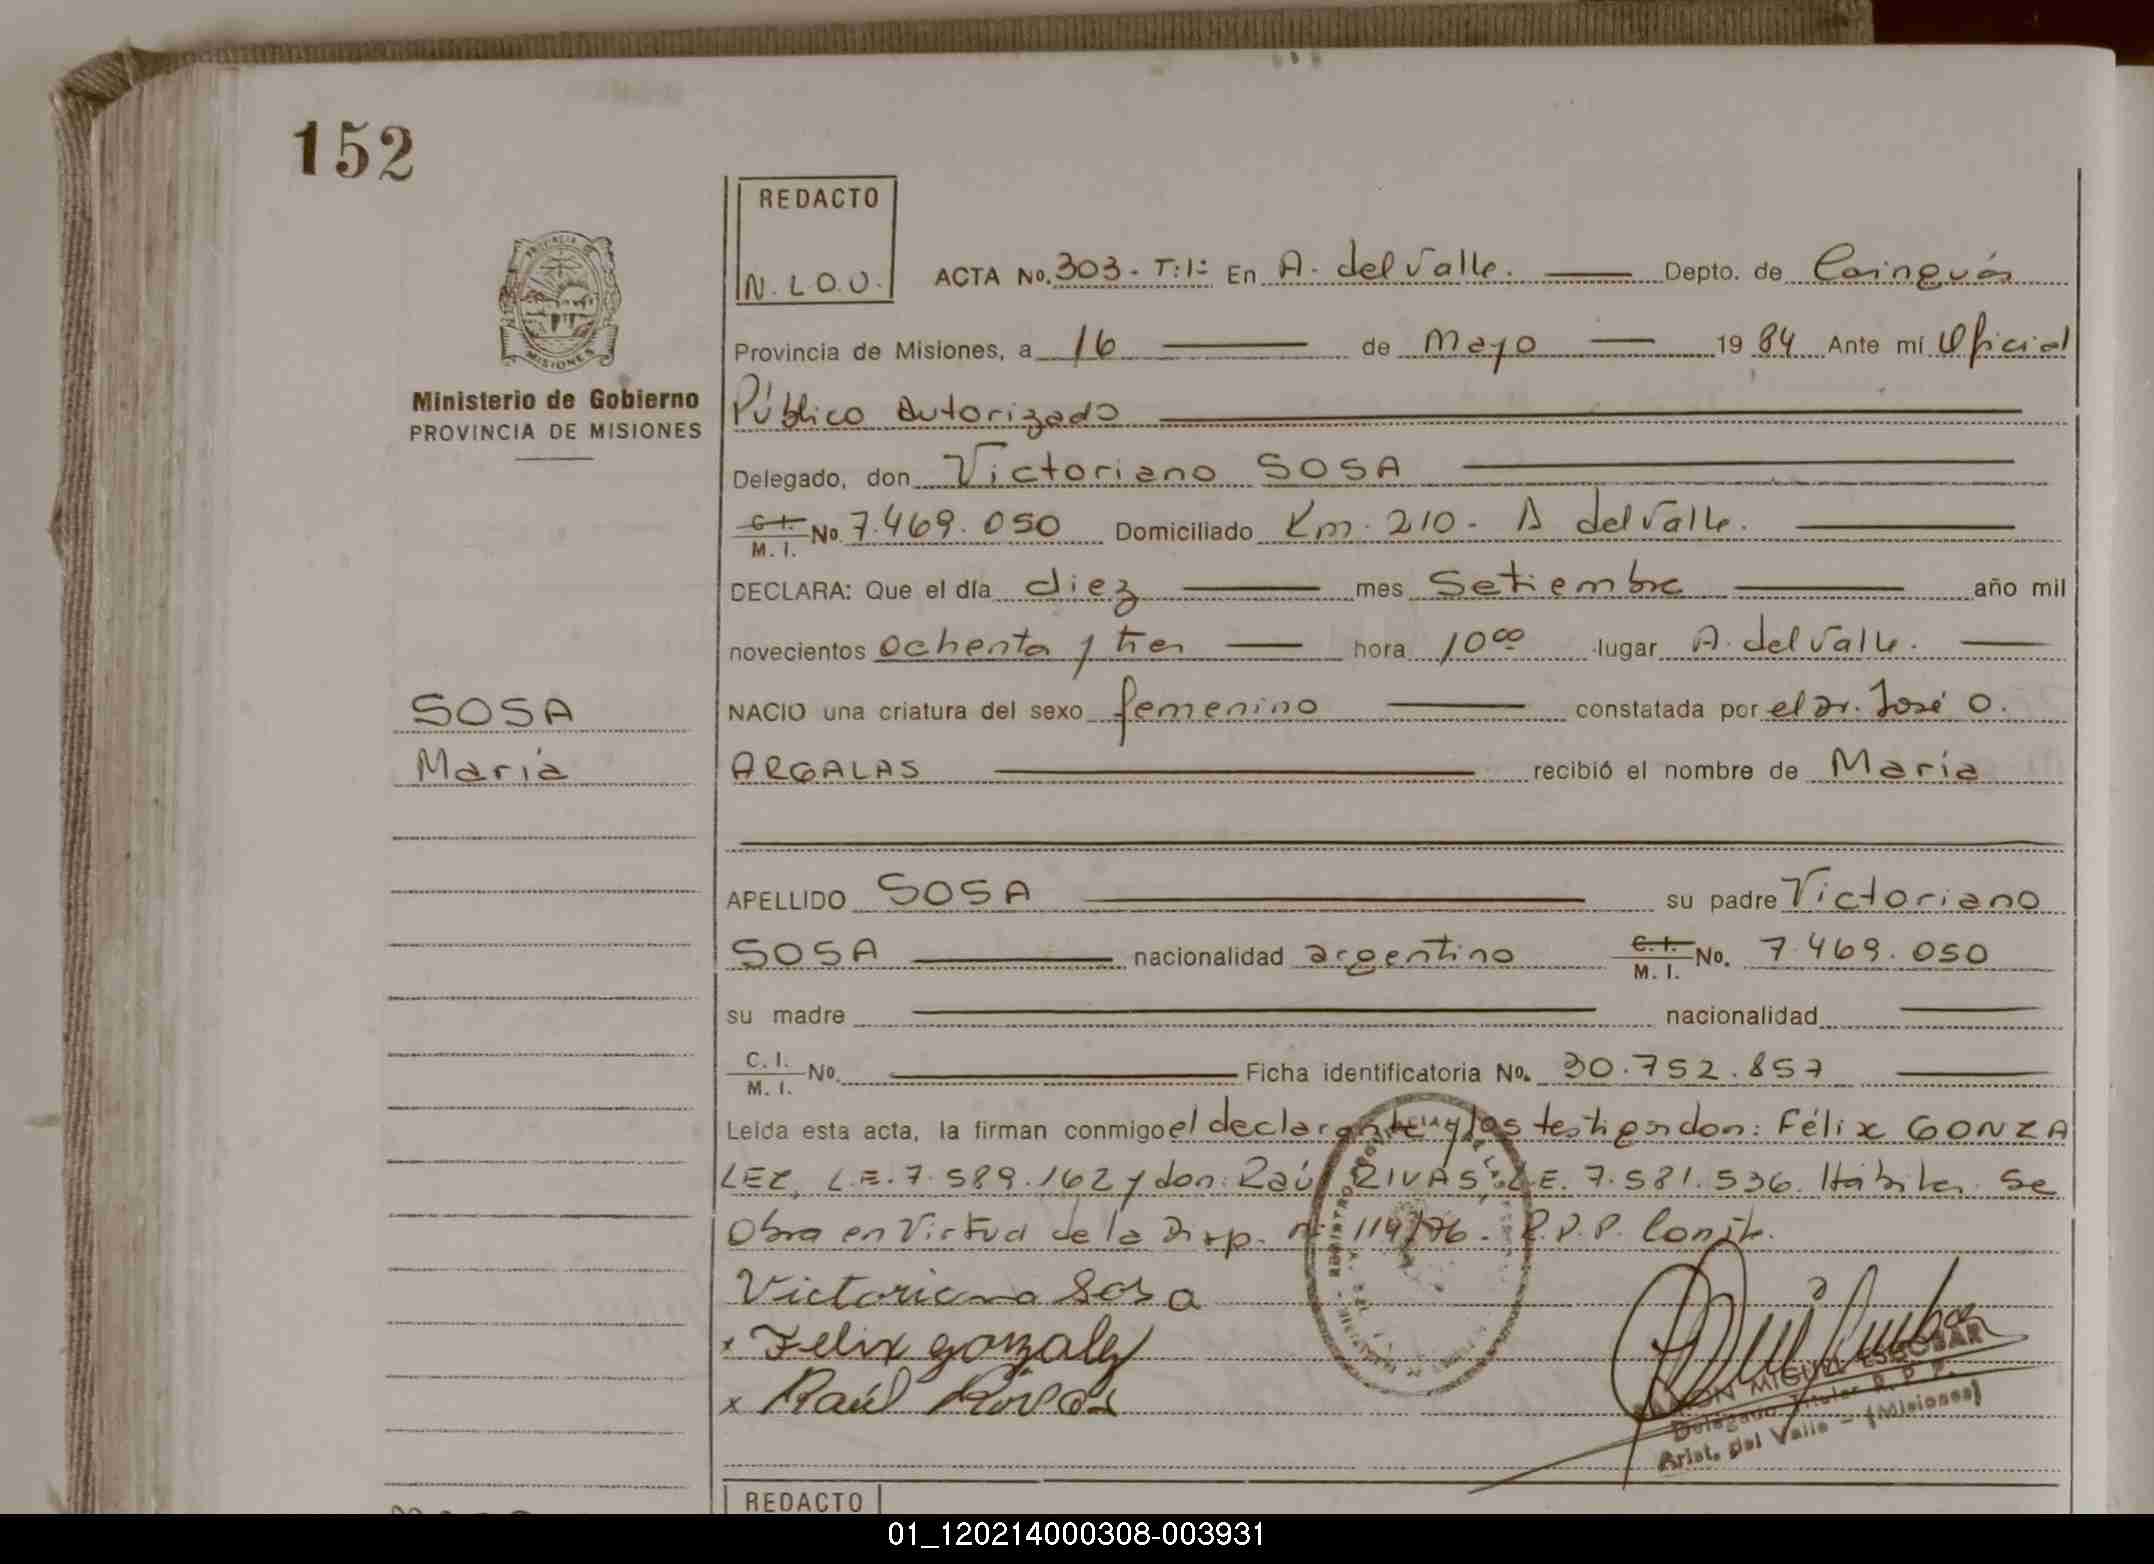 152
REDACTO
N.L.O.U.
ACTA No. 303 - T:1: En A. del Valle. Depto. de Cainguás
Provincia de Misiones, a 16 de Mayo 19 84 Ante mí Oficial
Público Autorizado
PROVINCIA DE
MISIONES
Ministerio de Gobierno
PROVINCIA DE MISIONES
Delegado, don Victoriano SOSA
C.I. M.I. No 7.469.050 Domiciliado Km. 210 - A del Valle.
DECLARA: Que el día diez mes Setiembre año mil
novecientos ochenta y tres hora 10 00 lugar A. del Valle.
SOSA
María
NACIO una criatura del sexo femenino constatada por el Dr. José O.
ARGALAS recibió el nombre de María
APELLIDO SOSA su padre Victoriano
SOSA nacionalidad argentino C.I. M.I. No. 7.469.050
su madre nacionalidad
C.I. M.I. No. Ficha identificatoria No. 30.752.857
Leída esta acta, la firman conmigo el declarante y los testigos don: Félix GONZA
LEZ, L.E. 7.589.162 y don: Raúl RIVAS, L.E. 7.581.536. Hábiles. Se
Obra en Virtud de la Disp. nº 114/76 - R.P.P.
Victoriano Sosa
x Felix gonzalez
x Raúl Rivas
RAMON MIGUEL ESCOBAR
Delegado Titular R. P. P.
Arist. del Valle - (Misiones)
REDACTO
01_120214000308-003931